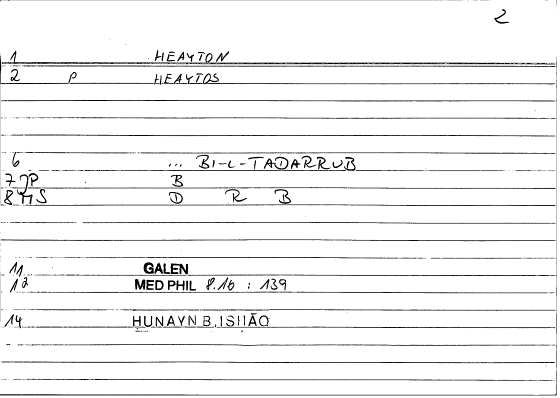 2
1 HEAYTON
2 P HEAYTOS
6 ... BI-L-TADARRUB
7 JP B
8 MS D R B
11 GALEN
12 MED PHIL 8.16 : 139
14 HUNAYN B. ISHĀQ